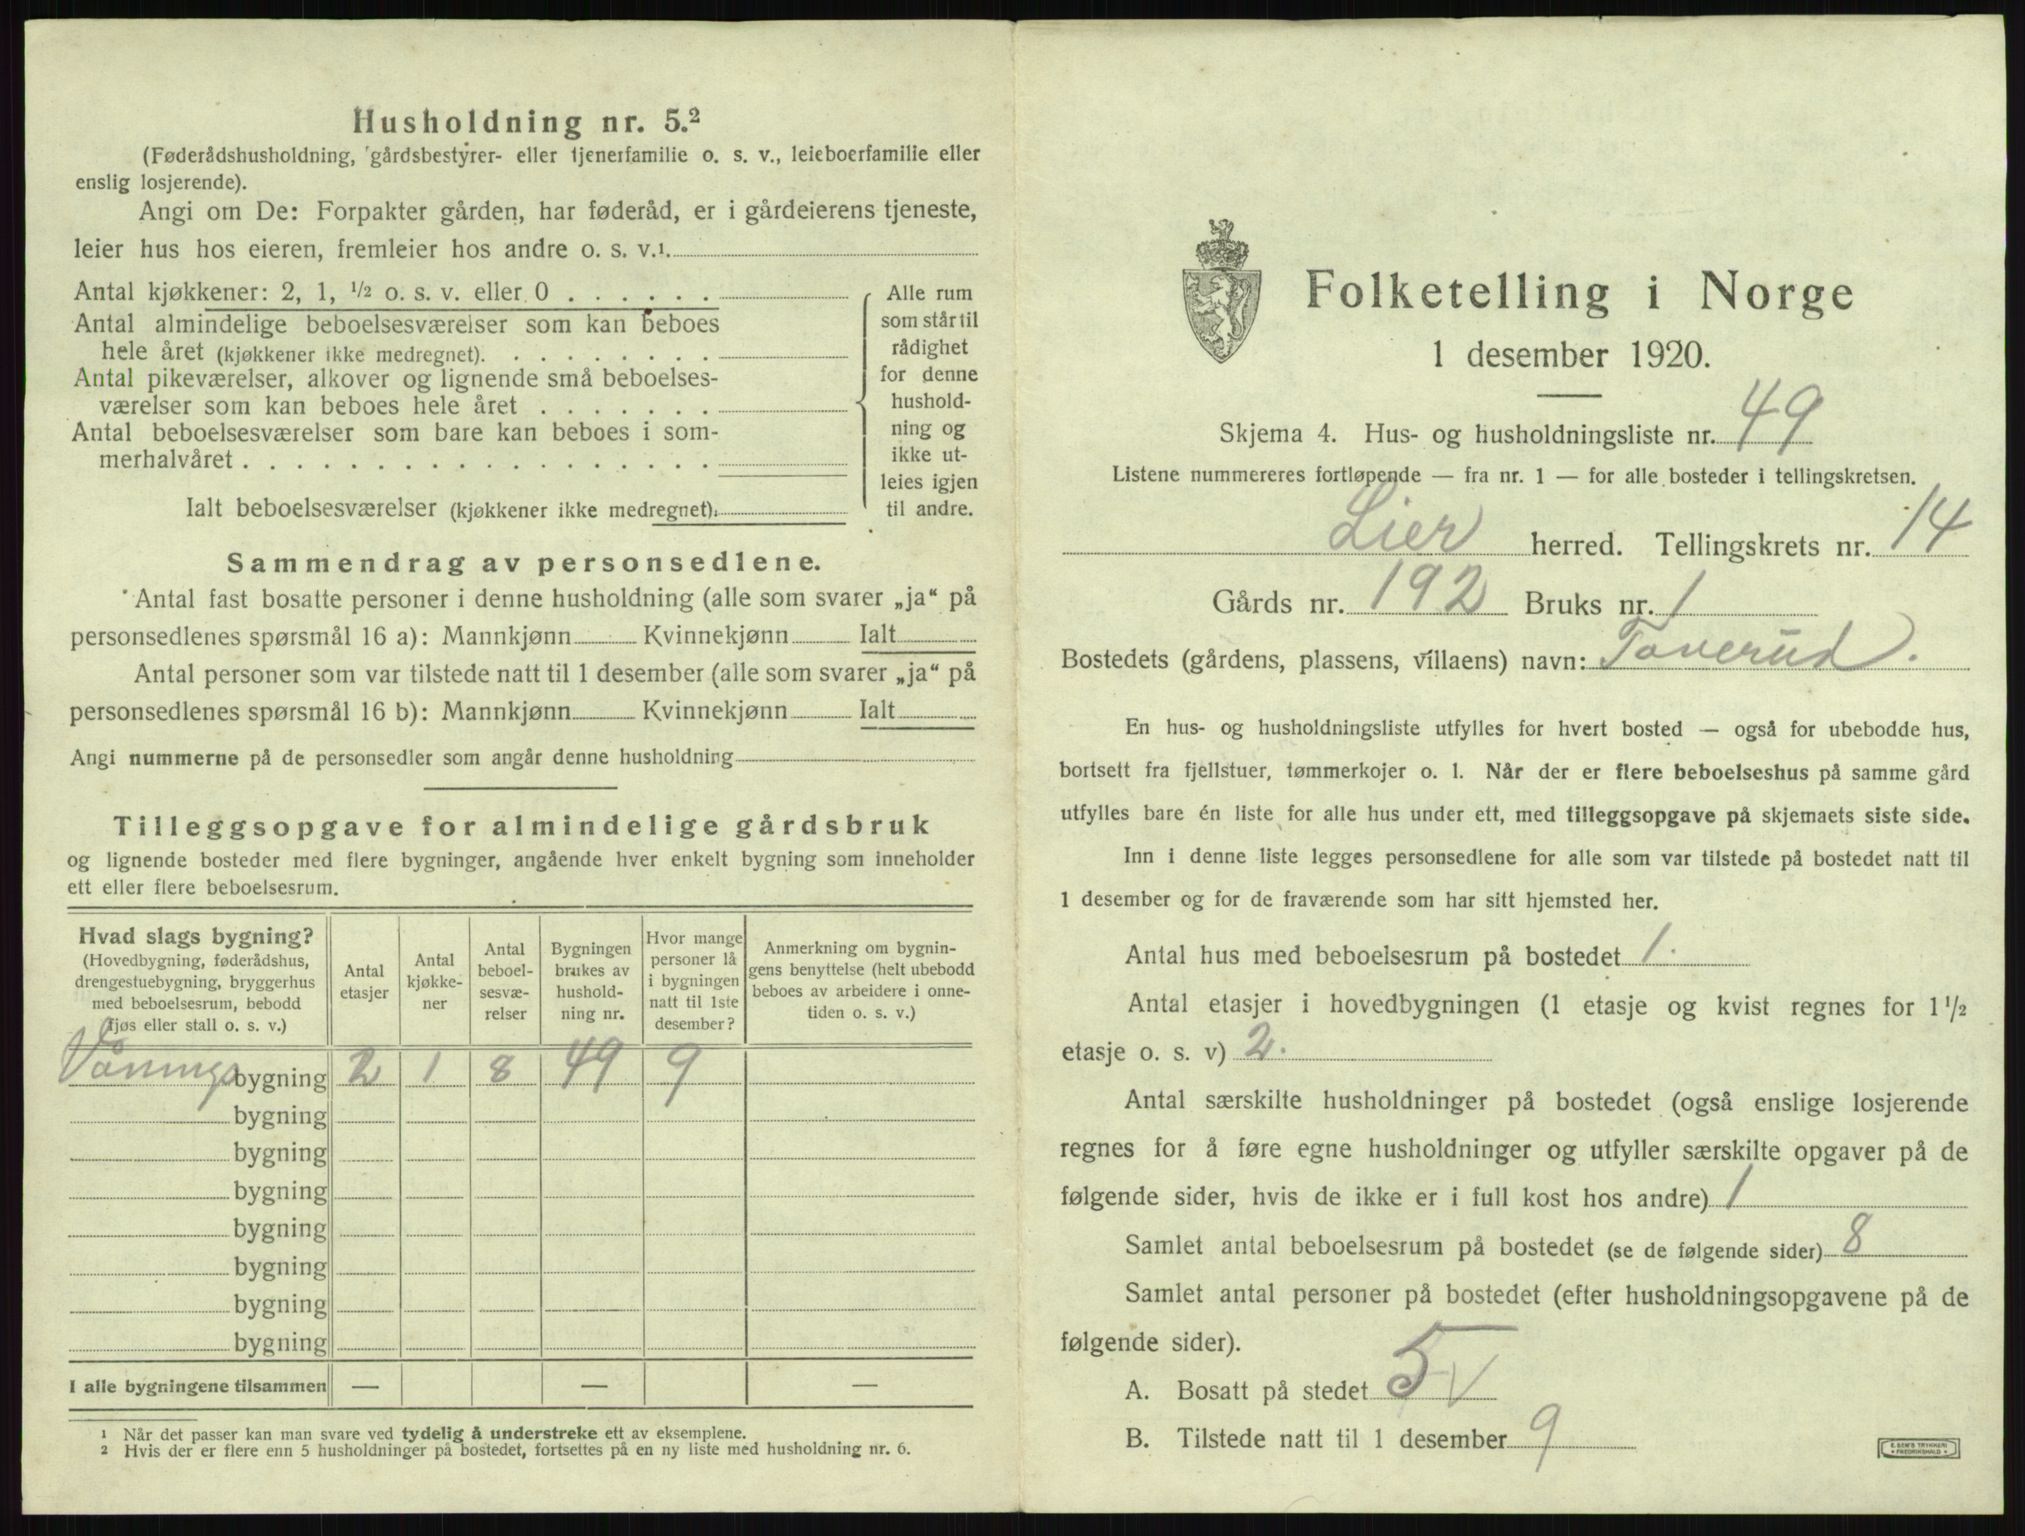 Husholdning nr. 5.²
(Føderådshusholdning, gårdsbestyrer- eller tjenerfamilie o. s. v., leieboerfamilie eller
enslig losjerende).
Angi om De: Forpakter gården, har føderåd, er i gårdeierens tjeneste,
leier hus hos eieren, fremleier hos andre o. s. v.¹
Antal kjøkkener: 2, 1, ½ o. s. v. eller 0
Antal almindelige beboelsesværelser som kan beboes
hele året (kjøkkener ikke medregnet).
Antal pikeværelser, alkover og lignende små beboelses-
værelser som kan beboes hele året
Antal beboelsesværelser som bare kan beboes i som-
merhalvåret
Ialt beboelsesværelser (kjøkkener ikke medregnet).
Alle rum
som står til
rådighet
for denne
hushold-
ning og
ikke ut-
leies igjen
til andre.
Sammendrag av personsedlene.
Antal fast bosatte personer i denne husholdning (alle som svarer „ja“ på
personsedlenes spørsmål 16 a): Mannkjønn Kvinnekjønn Ialt
Antal personer som var tilstede natt til 1 desember (alle som svarer „ja“ på
personsedlenes spørsmål 16 b): Mannkjønn Kvinnekjønn Ialt
Angi nummerne på de personsedler som angår denne husholdning
Tilleggsopgave for almindelige gårdsbruk
og lignende bosteder med flere bygninger, angående hver enkelt bygning som inneholder
ett eller flere beboelsesrum.
Hvad slags bygning?
(Hovedbygning, føderådshus,
drengestuebygning, bryggerhus
med beboelsesrum, bebodd
fjøs eller stall o. s. v.)
Antal
etasjer
Antal
kjøkke-
ner
Antal
beboel-
sesvæ-
relser
Bygningen
brukes av
hushold-
ning nr.
Hvor mange
personer lå
i bygningen
natt til 1ste
desember?
Anmerkning om bygnin-
gens benyttelse (helt ubebodd
beboes av arbeidere i onne-
tiden o. s. v.)
Vånings bygning 2 1 8 49 9
bygning
bygning
bygning
bygning
bygning
bygning
bygning
I alle bygningene tilsammen — — —
¹ Når det passer kan man svare ved tydelig å understreke ett av eksemplene.
² Hvis der er flere enn 5 husholdninger på bostedet, fortsettes på en ny liste med husholdning nr. 6.
Folketelling i Norge
1 desember 1920.
Skjema 4. Hus- og husholdningsliste nr. 49
Listene nummereres fortløpende — fra nr. 1 — for alle bosteder i tellingskretsen.
Lier herred. Tellingskrets nr. 14
Gårds nr. 192 Bruks nr. 1
Bostedets (gårdens, plassens, villaens) navn: Toverud.
En hus- og husholdningsliste utfylles for hvert bosted — også for ubebodde hus,
bortsett fra fjellstuer, tømmerkojer o. l. Når der er flere beboelseshus på samme gård
utfylles bare én liste for alle hus under ett, med tilleggsopgave på skjemaets siste side.
Inn i denne liste legges personsedlene for alle som var tilstede på bostedet natt til
1 desember og for de fraværende som har sitt hjemsted her.
Antal hus med beboelsesrum på bostedet 1.
Antal etasjer i hovedbygningen (1 etasje og kvist regnes for 1 ½
etasje o. s. v) 2.
Antal særskilte husholdninger på bostedet (også enslige losjerende
regnes for å føre egne husholdninger og utfyller særskilte opgaver på de
følgende sider, hvis de ikke er i full kost hos andre) 1
Samlet antal beboelsesrum på bostedet (se de følgende sider) 8
Samlet antal personer på bostedet (efter husholdningsopgavene på de
følgende sider).
A. Bosatt på stedet 5 √
B. Tilstede natt til 1 desember 9
E. SEM'S TRYKKERI
• FREDRIKSHALD •